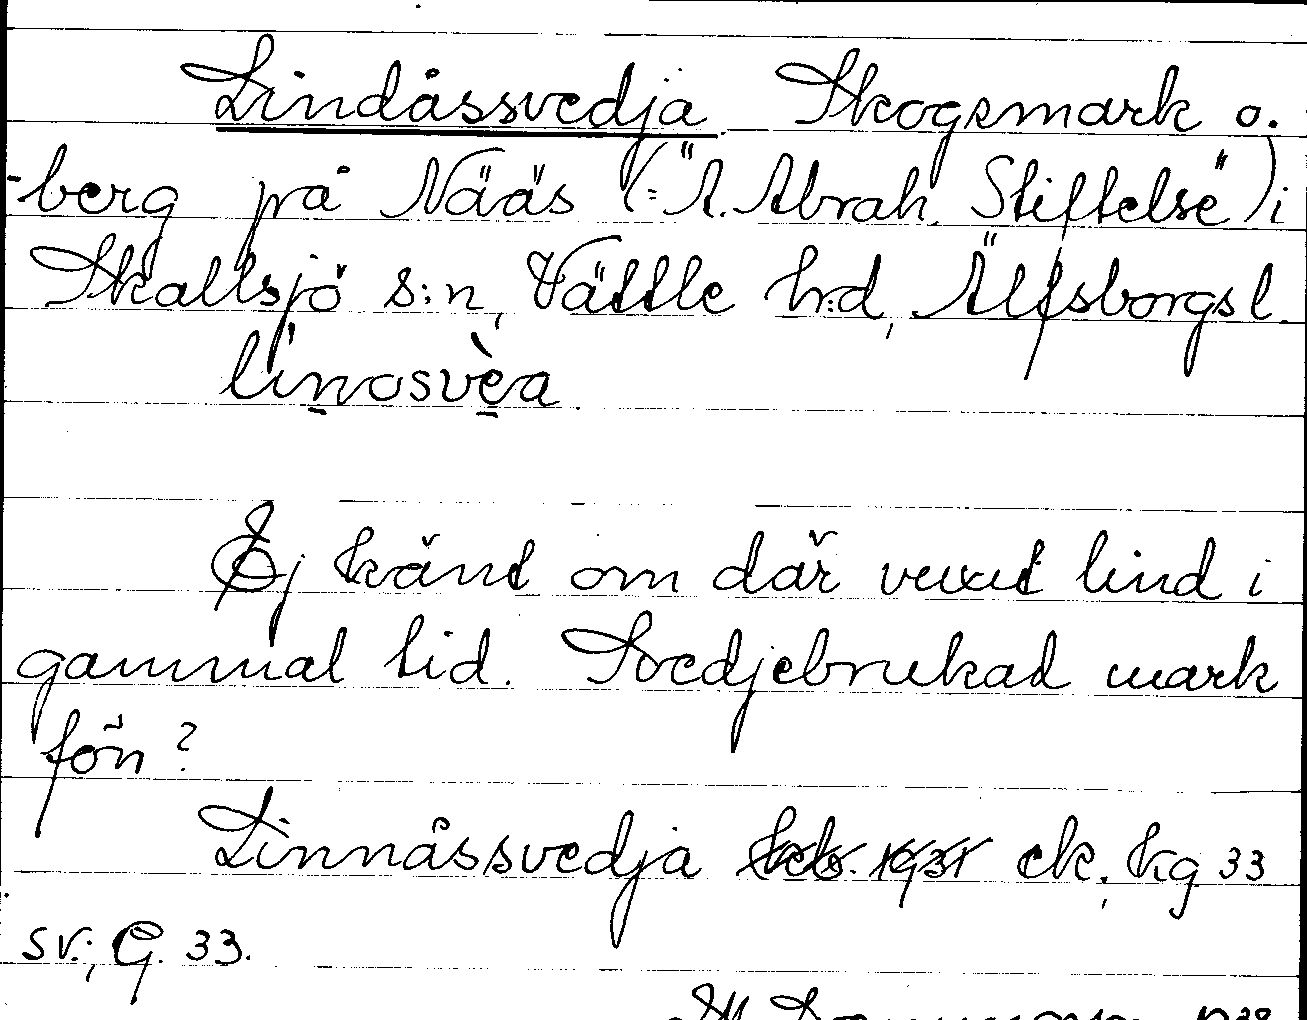 Lindåssvedja Skogsmark o.
-berg på Nääs (="A. Abrah. Stiftelse") i
Skallsjö s:n, Vättle h:d, Älfsborgs l.
lìnosvèa
Ej känt om där vuxit lind i
gammal tid. Svedjebrukad mark
förr?
Linnåssvedja ek; kg 33
sv.; G. 33.